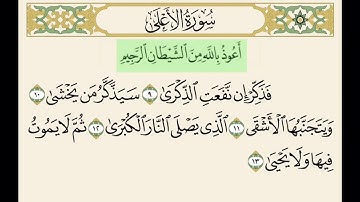 سُورَةُ الأَعْلَى
أَعُوذُ بِاللَّهِ مِنَ الشَّيْطَانِ الرَّجِيمِ
فَذَكِّرْ إِن نَّفَعَتِ ٱلذِّكْرَىٰ ٩ سَيَذَّكَّرُ مَن يَخْشَىٰ ١٠
وَيَتَجَنَّبُهَا ٱلْأَشْقَى ١١ ٱلَّذِى يَصْلَى ٱلنَّارَ ٱلْكُبْرَىٰ ١٢ ثُمَّ لَا يَمُوتُ
فِيهَا وَلَا يَحْيَىٰ ١٣